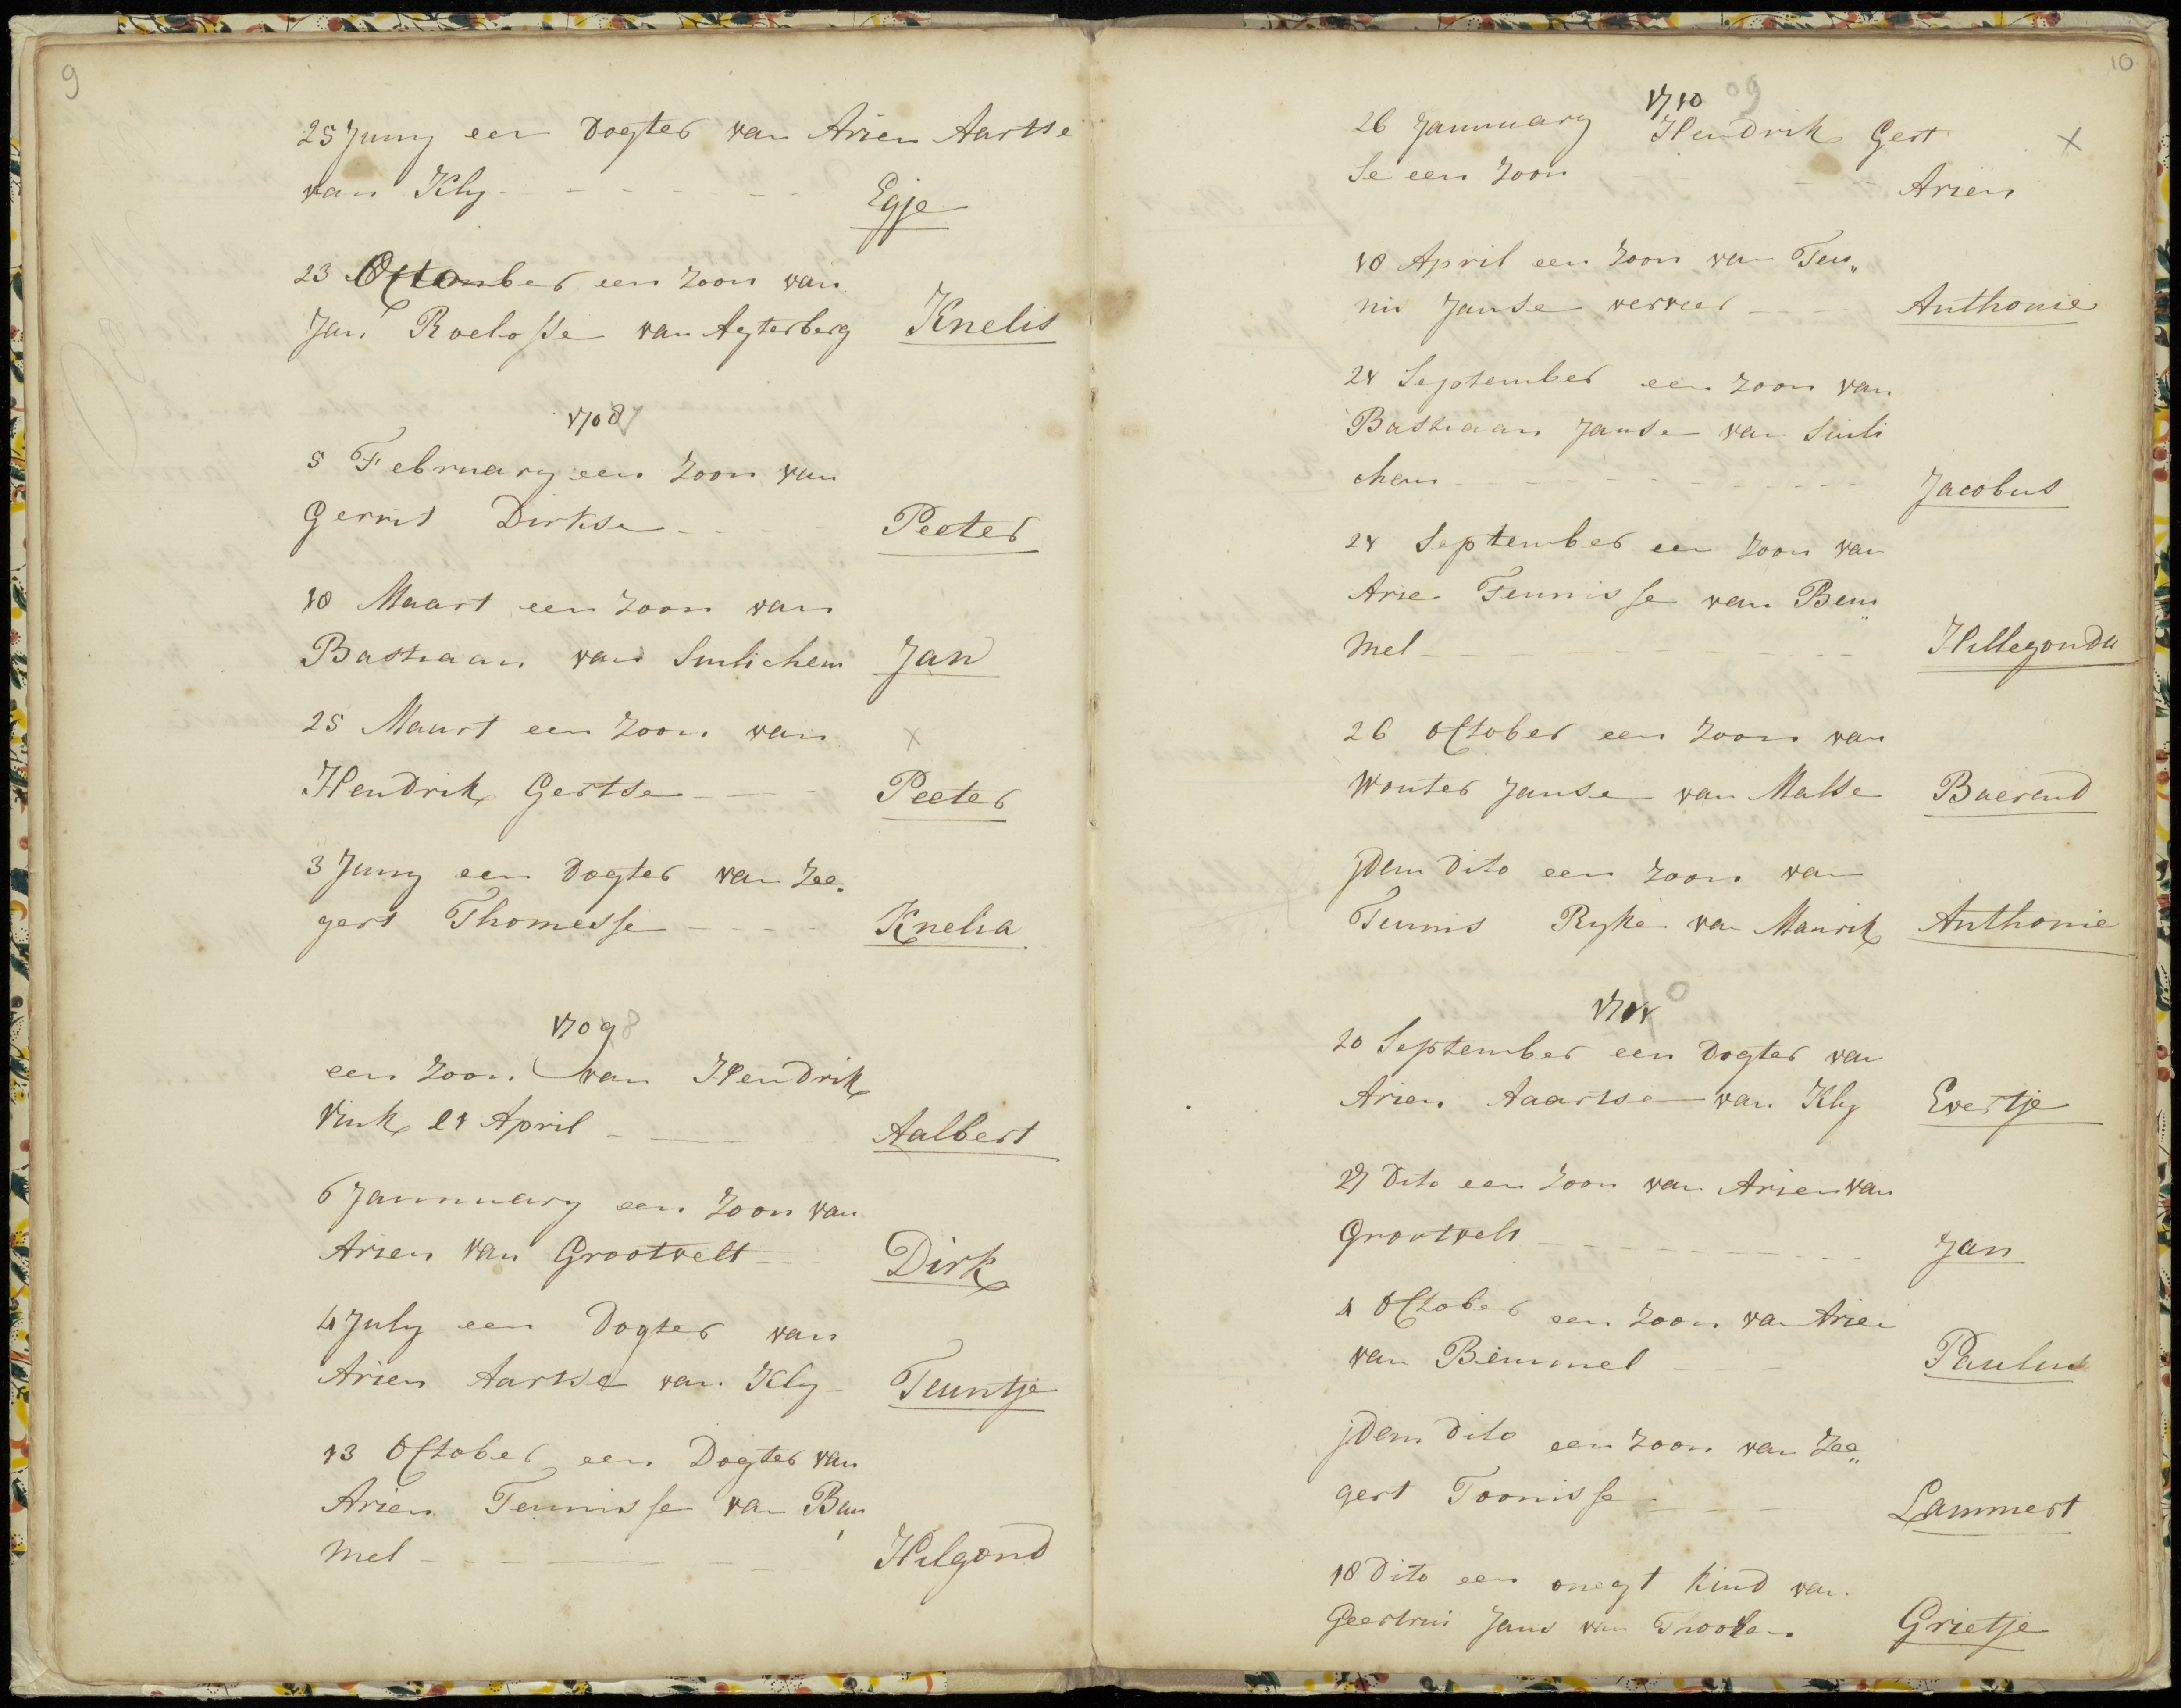 9
25 Juny een Dogter van Arien Aartse
van Kly - - - - - - Egje
23 October een zoon van
Jan Roelofse van Agterberg Knelis
1708 7
5 February een zoon van
Gerrit Dirkse - - - - Peeter
18 Maart een zoon van
Bastiaan van Sulichem Jan
25 Maart een zoon van x
Hendrik Gertse - - - Peeter
3 Juny een Dogter van Zee„
gert Thomesse - - - - Knelia
1709 8
een zoon van Hendrik
Vink 21 April - - - Aalbert
6 Jannuary een zoon van
Arien van Grootvelt - - Dirk
4 July een Dogter van
Arien Aartse van Kly - Teuntje
13 October een Dogter van
Arien Teunisse van Bem
mel - - - - - - Hilgond
10
1710 09
26 Jannuary Hendrik Gert x
se een zoon - - - Arien
18 April een zoon van Teu„
nis Janse verveer - - - Anthonie
21 September een zoon van
Bastiaan Janse van Suli
chem - - - - - - Jacobus
21 September een zoon van
Arie Teunisse van Bem„
mel - - - - - - Hillegonda
26 October een zoon van
Wouter Janse van Malse Baerend
jdem Dito een zoon van
Teunis Ryke van Maurik Anthonie
1711 0
20 September een Dogter van
Arien Aaartse van Kly Evertje
27 Dito een zoon van Arien van
Grootvelt - - - - - - Jan
4 October een zoon van Arien
van Bemmel - - - Paulus
jdem Dito een zoon van Zee„
gert Toonisse - - - Lammert
18 Dito een onegt kind van
Geertrui Jans van Grietje